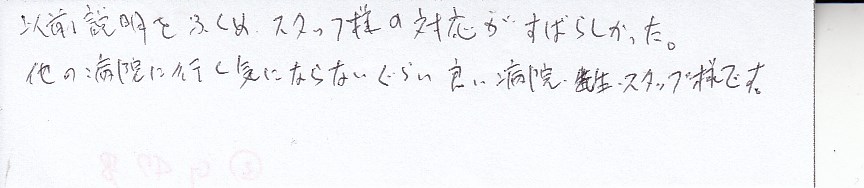 以前説明をふくめ、スタッフ様の対応がすばらしかった。
他の病院に行く気にならないぐらい良い病院・先生・スタッフ様です。